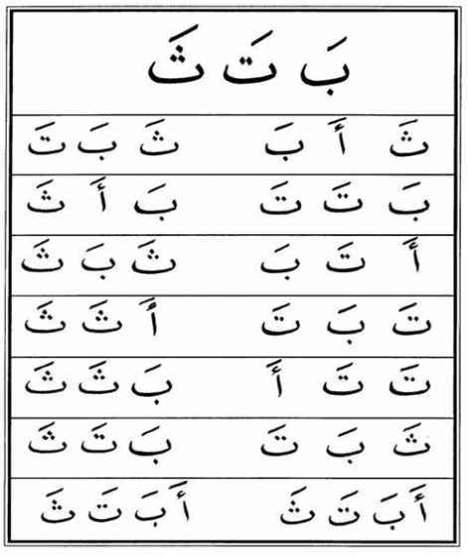 بَ تَ ثَ
ثَ أَ بَ ثَ بَ تَ
بَ تَ تَ بَ أَ ثَ
أَ تَ بَ ثَ بَ ثَ
تَ بَ تَ أَ ثَ ثَ
تَ تَ أَ بَ ثَ ثَ
ثَ بَ تَ بَ تَ ثَ
أَ بَ تَ ثَ أَ بَ تَ ثَ